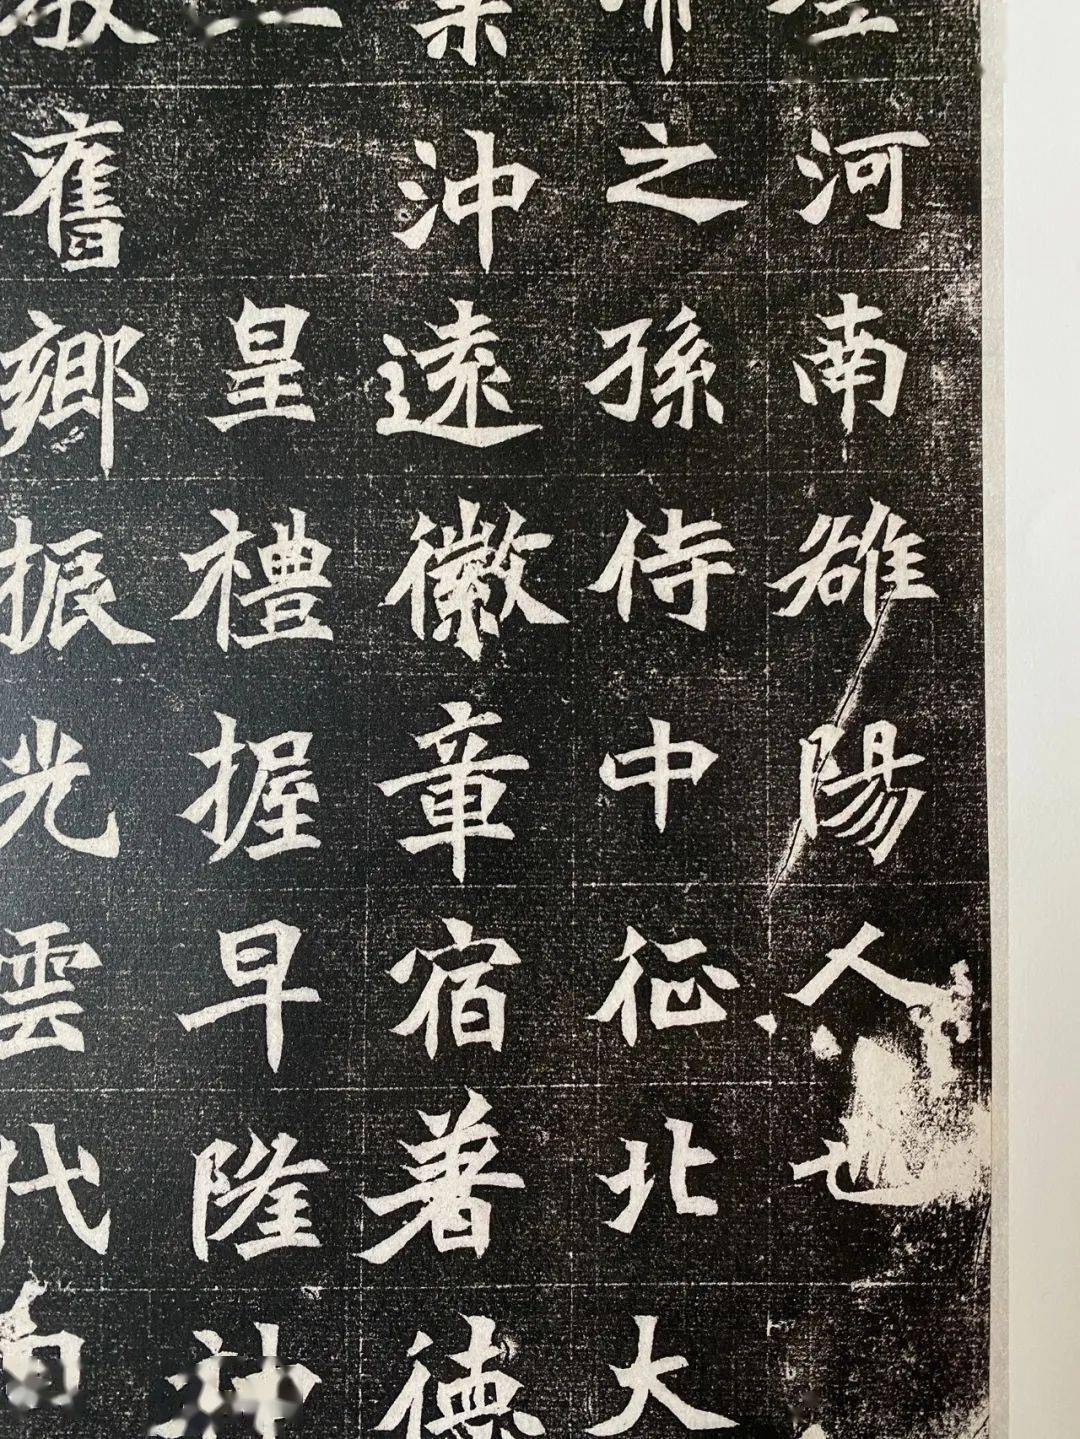 河南雒陽人也
之孫侍中征北大
沖遠徽章宿著德
皇禮握早隆神
舊鄉振光雲代